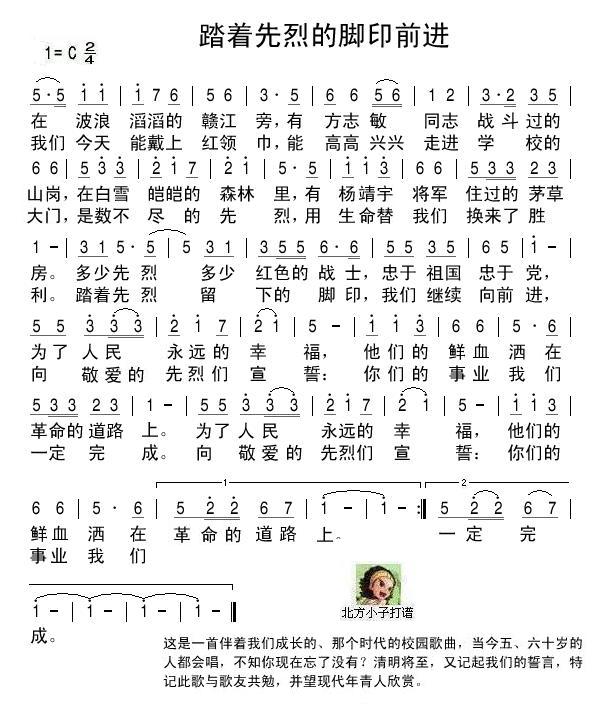 踏着先烈的脚印前进
1=C 2/4
5·5 1 1 | 1 7 6 | 5 6 | 3·5 | 6 6 5 6 | 1 2 | 3·2 3 5 |
在 波浪 滔滔的 赣江 旁,有 方志敏 同志 战斗过的
我们 今天 能戴上 红领 巾,能 高高 兴兴 走进 学 校的
6 6 | 5 3 3 | 2 1 7 | 2 1 | 5·5 | 1 1 3 | 6 6 | 5 3 3 | 2 3 |
山岗,在白雪 皑皑的 森林 里,有 杨靖宇 将军 住过的 茅草
大门,是数不 尽 的 先 烈,用 生命替 我们 换来了 胜
1 - | 3 1 5·5 | 5 3 1 | 3 5 5 6·6 | 5 5 | 3 5 | 6 5 | 1 - |
房。多少先 烈 多少 红色的 战士,忠于 祖国 忠于 党,
利。踏着先 烈 留 下的 脚印,我们 继续 向前 进,
5 5 3 3 3 | 2 1 7 | 2 1 | 5 - | 1 1 3 | 6 6 | 5·6 |
为了 人民 永远的 幸 福,他们的 鲜血 洒在
向 敬爱的 先烈们 宣 誓:你们的 事业 我们
5 3 3 2 3 | 1 - | 5 5 3 3 3 | 2 1 7 | 2 1 | 5 - | 1 1 3 |
革命的 道路 上。为了 人民 永远的 幸 福,他们的
一定 完 成。向 敬爱的 先烈们 宣 誓:你们的
1 2
6 6 | 5·6 | 5 2 2 6 7 | 1 - | 1 - :‖ 5 2 2 6 7 |
鲜血 洒 在 革命的 道路 上。 一定 完
事业 我 们
1 - | 1 - | 1 - | 1 - ‖
北方小子打谱
成。
这是一首伴着我们成长的、那个时代的校园歌曲,当今五、六十岁的
人都会唱,不知你现在忘了没有?清明将至,又记起我们的誓言,特
记此歌与歌友共勉,并望现代年青人欣赏。